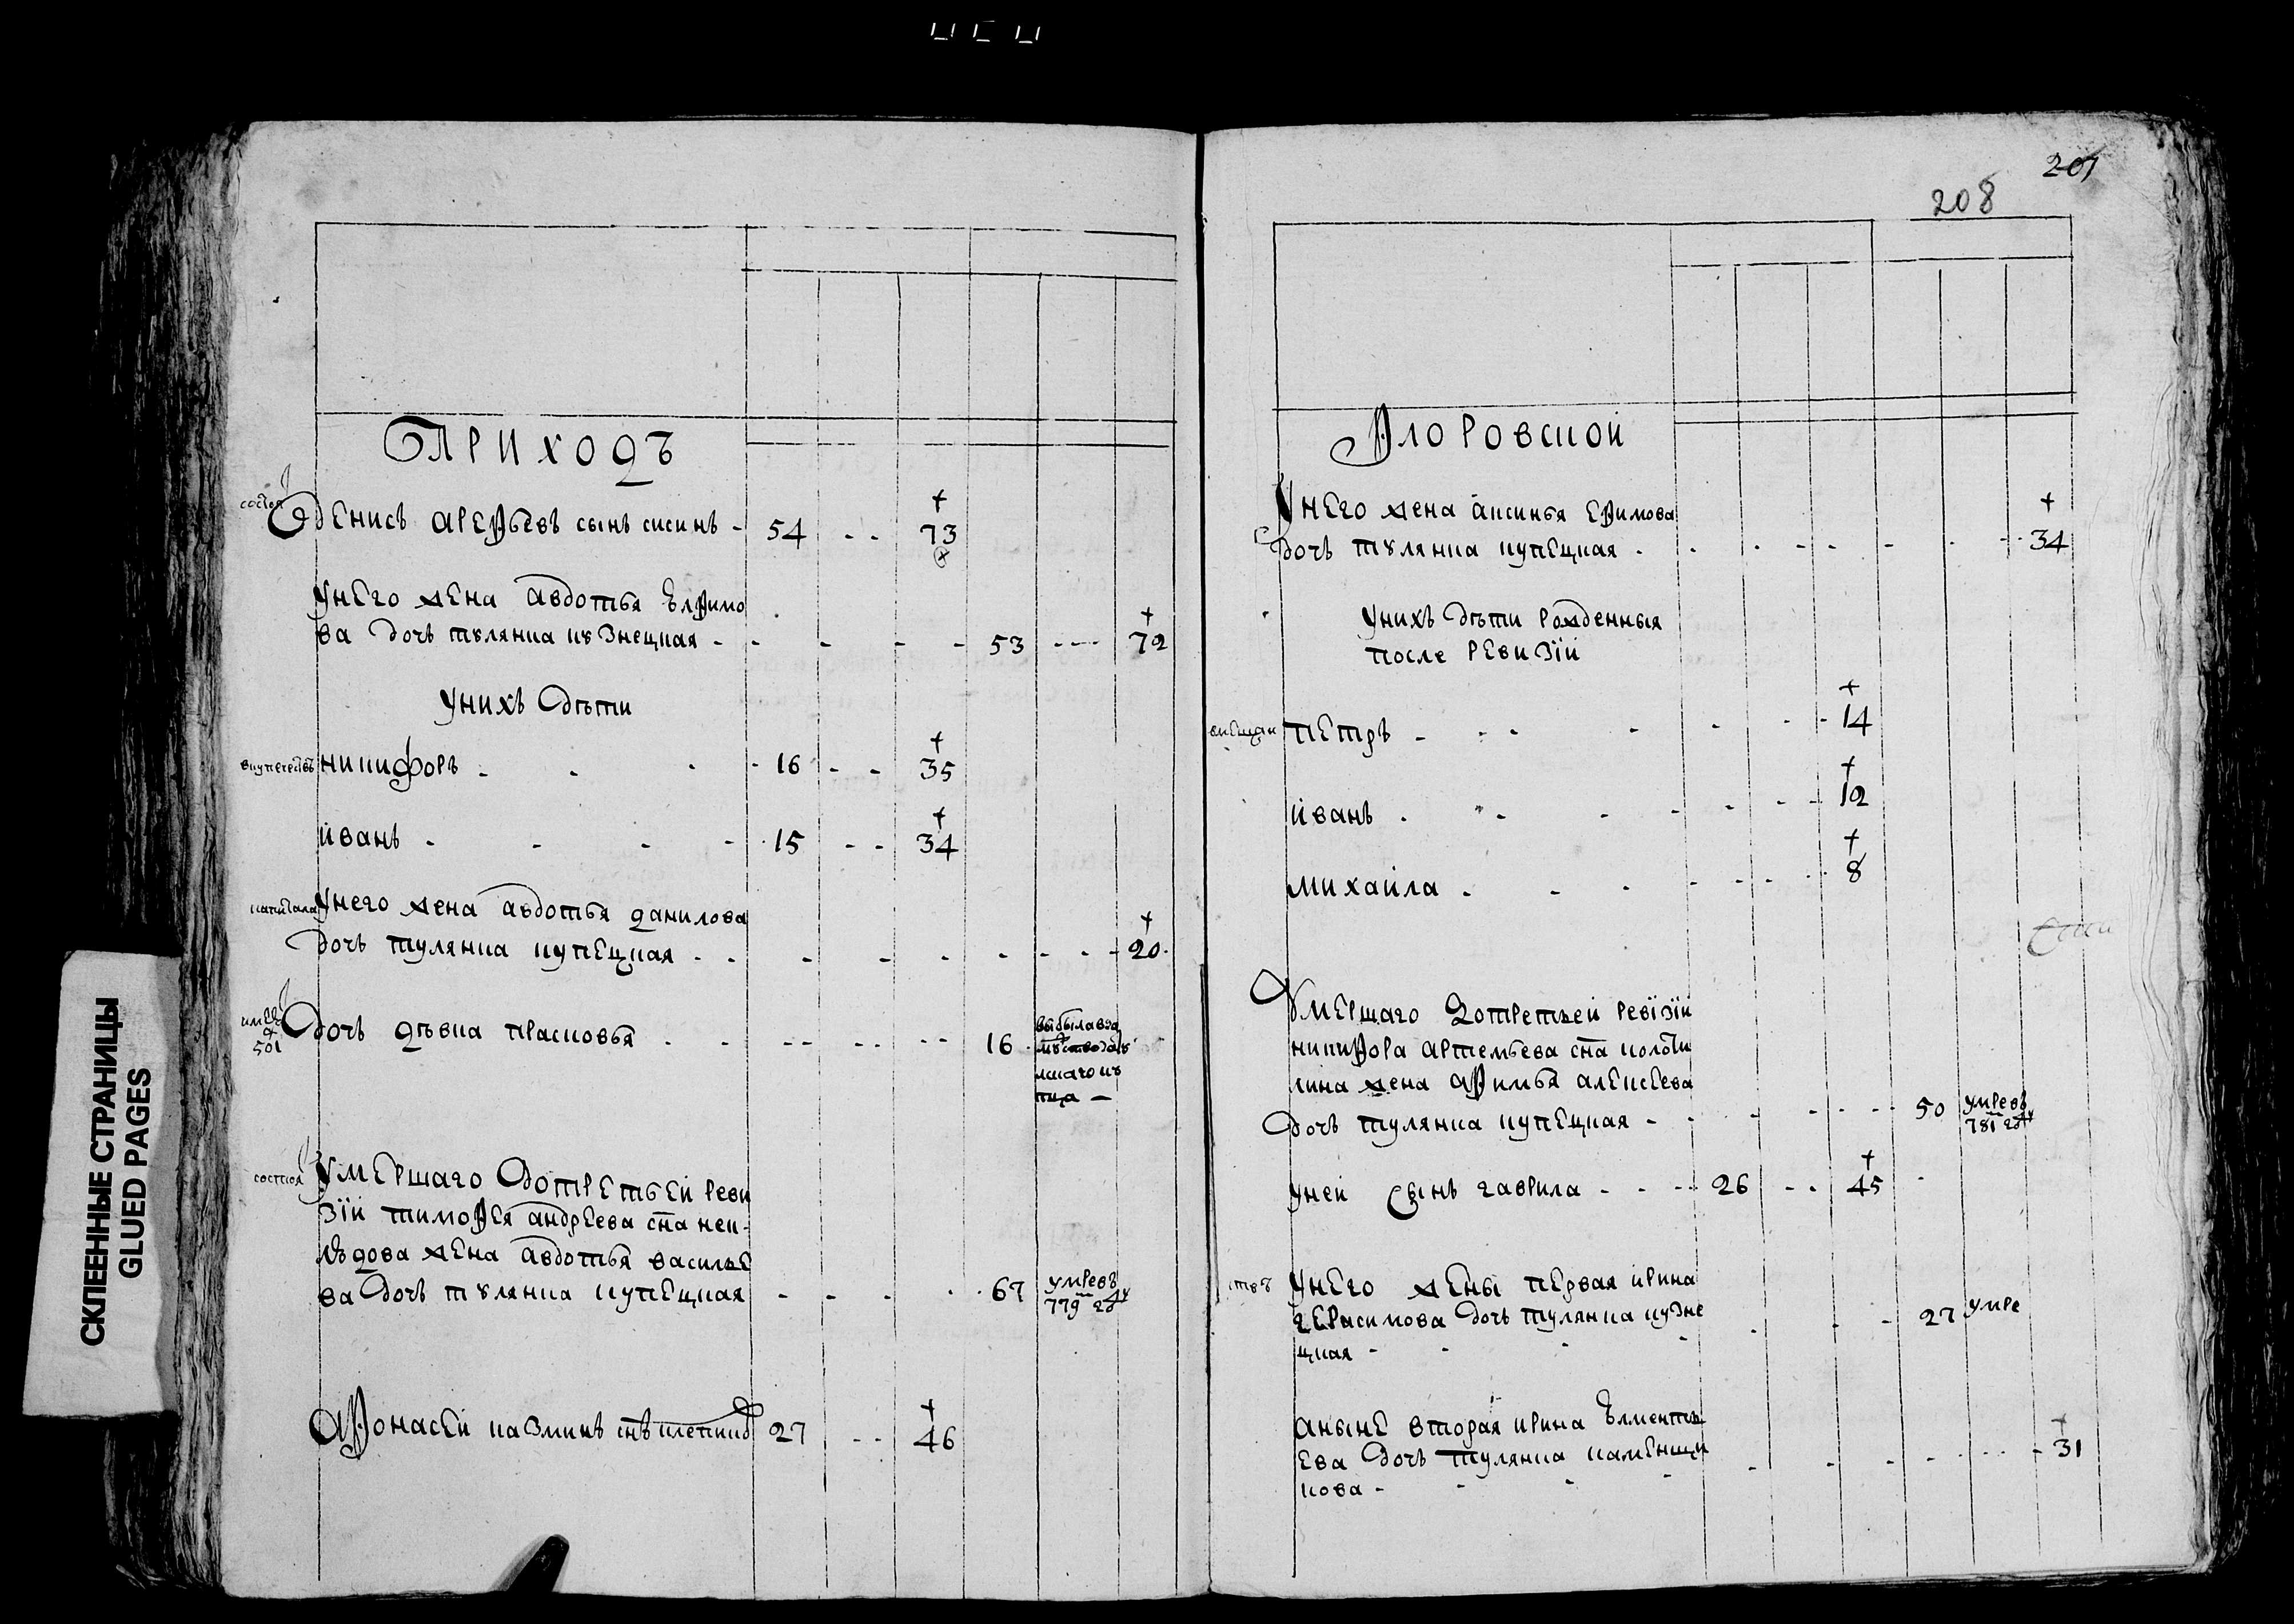 201
208
Приходъ
состоя
Денисъ Арефьевъ сынъ сисинъ - 54 - - 73
унего жена авдотья Ѣвфимо
ва дочь тулянка кузнецкая - 53 - - 72
унихъ дѣти
вкупечествѣ никифоръ - 16 - - 35
иванъ - 15 - - 34
капитала унего жена авдотья данилова
дочь тулянка купецкая - - 20
501
дочь дѣвка прасковья 16 выбыла вза
мужство
ца
состоя умершаго дотретьей реви
зїи тимофея андреева сна
дова жена авдотья василье
ва дочь тулянка купецкая - 67 умре въ
779 году
Афонасей казминъ снъ 27 - - 46
Флоровской
унего жена аксинья ефимова
дочь тулянка купецкая - 34
унихъ дѣти рожденныя
после ревизїи
петръ - 14
иванъ - 12
михаила - 8
умершаго дотретьей ревїзїи
никифора артемьева сна
лина жена афимья алексеева
дочь тулянка купецкая - 50 умре въ
781 году
уней сынъ гаврила - 26 - - 45
унего жены первая ирина
герасимова дочь тулянка кузне
цкая - 27 умре
аныне вторая ирина Ѣлменть
ева дочь тулянка каменщи
кова - 31
СКЛЕЕННЫЕ СТРАНИЦЫ
GLUED PAGES